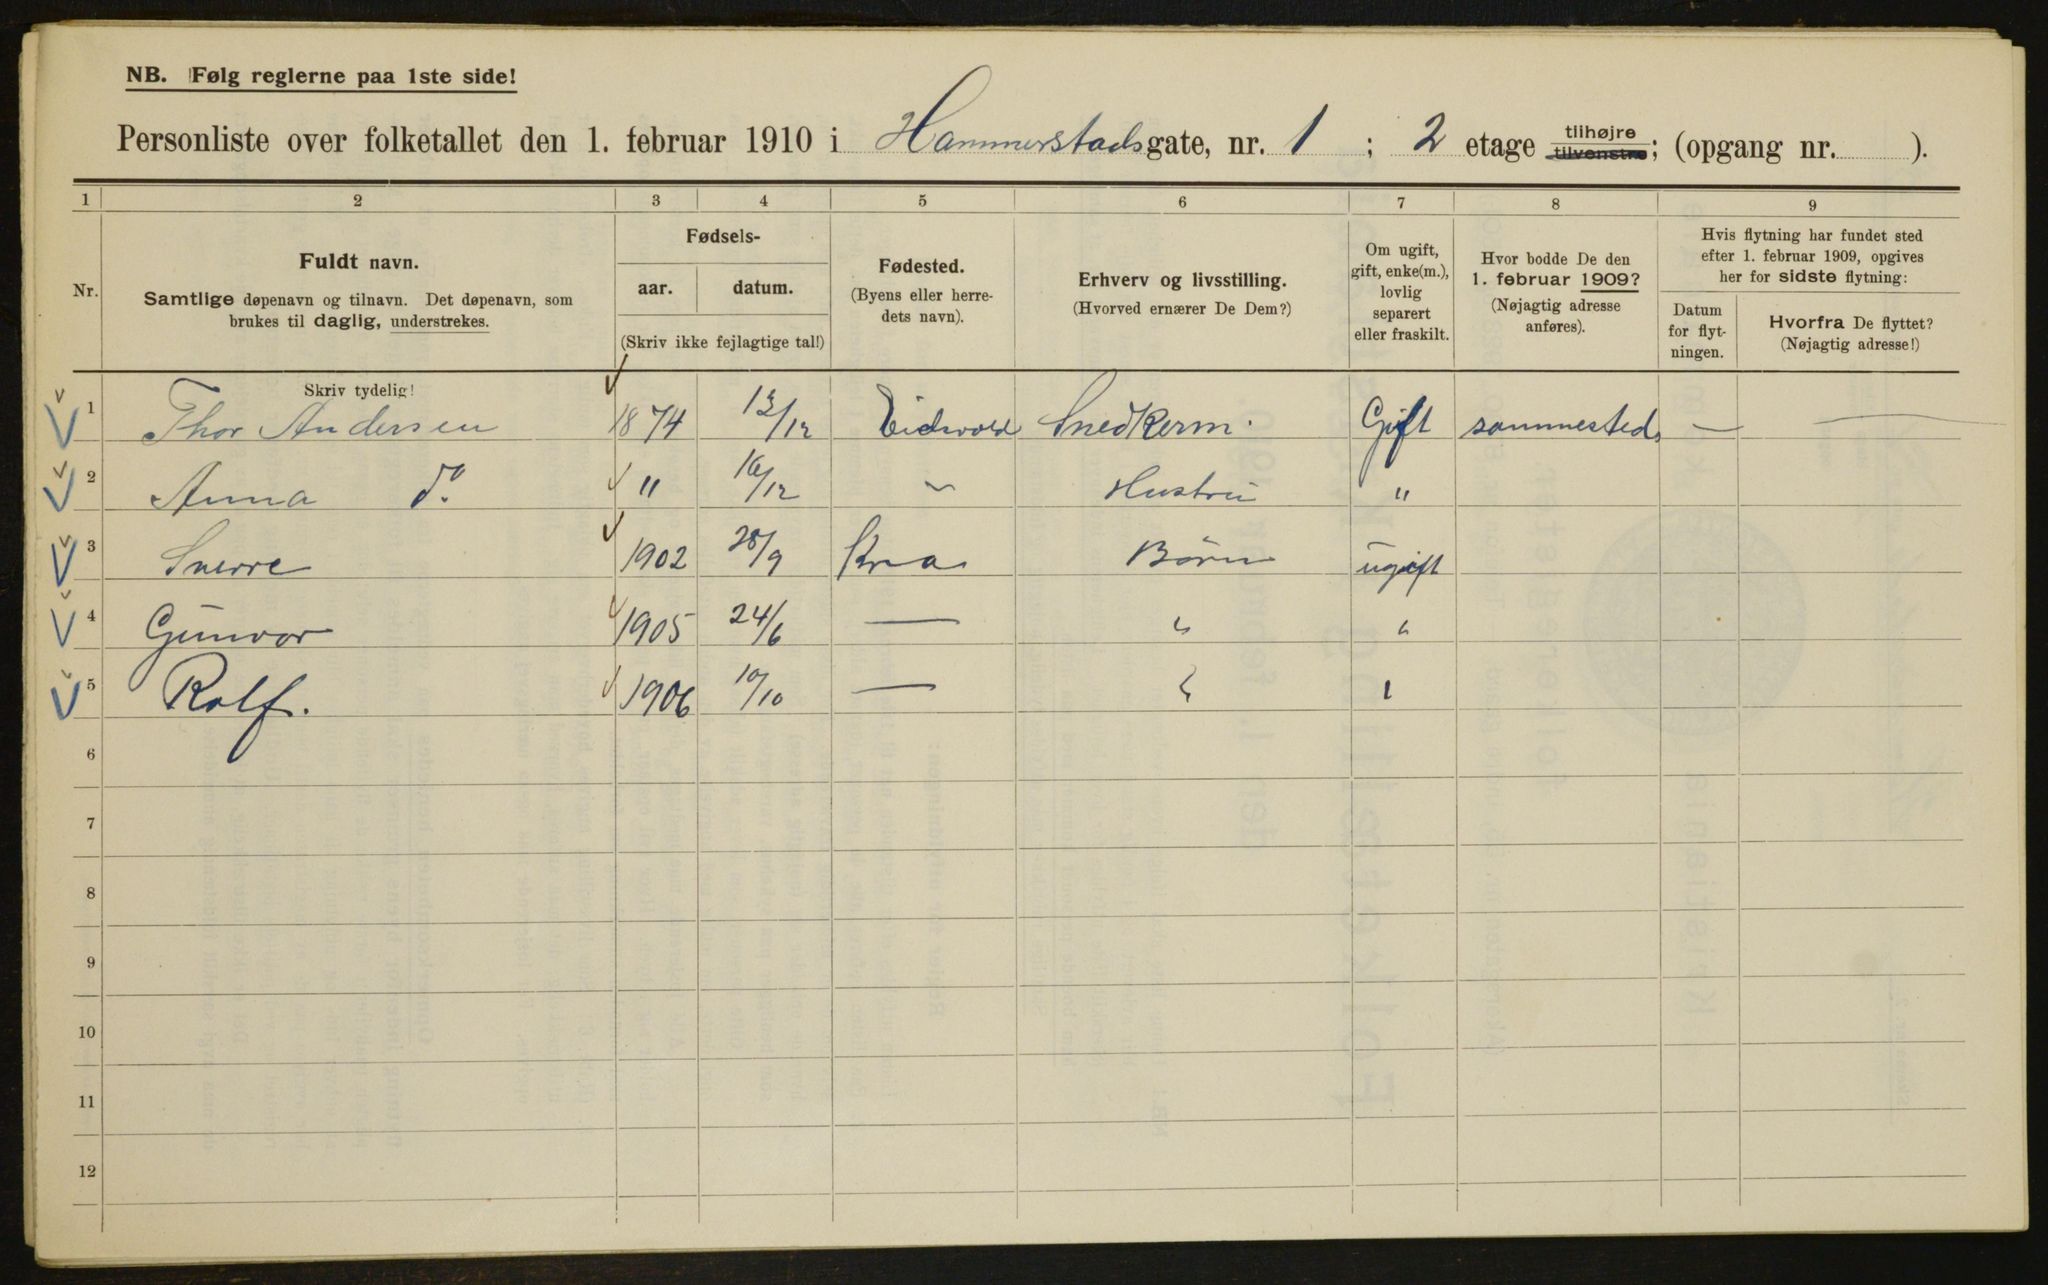 NB. Følg reglerne paa 1ste side!
Personliste over folketallet den 1. februar 1910 i Hammerstadsgate, nr. 1 ; 2 etage tilhøjre tilvenstre; (opgang nr. ).
1 2 3 4 5 6 7 8 9
Nr.
Fuldt navn.
Samtlige døpenavn og tilnavn. Det døpenavn, som
brukes til daglig, understrekes.
Fødsels-
aar. datum.
(Skriv ikke fejlagtige tal!)
Fødested.
(Byens eller herre-
dets navn).
Erhverv og livsstilling.
(Hvorved ernærer De Dem?)
Om ugift,
gift, enke(m.),
lovlig
separert
eller fraskilt.
Hvor bodde De den
1. februar 1909?
(Nøjagtig adresse
anføres).
Hvis flytning har fundet sted
efter 1. februar 1909, opgives
her for sidste flytning:
Datum
for flyt-
ningen.
Hvorfra De flyttet?
(Nøjagtig adresse!)
Skriv tydelig!
1 Thor Andersen 1874 13/12 Eidsvold Snedkerm. Gift sammesteds — —
2 Anna do. " 16/12 " Hustru "
3 Sverre 1902 28/9 Kra Børn ugift
4 Gunvor 1905 24/6 — " "
5 Rolf. 1906 10/10 — " "
6
7
8
9
10
11
12